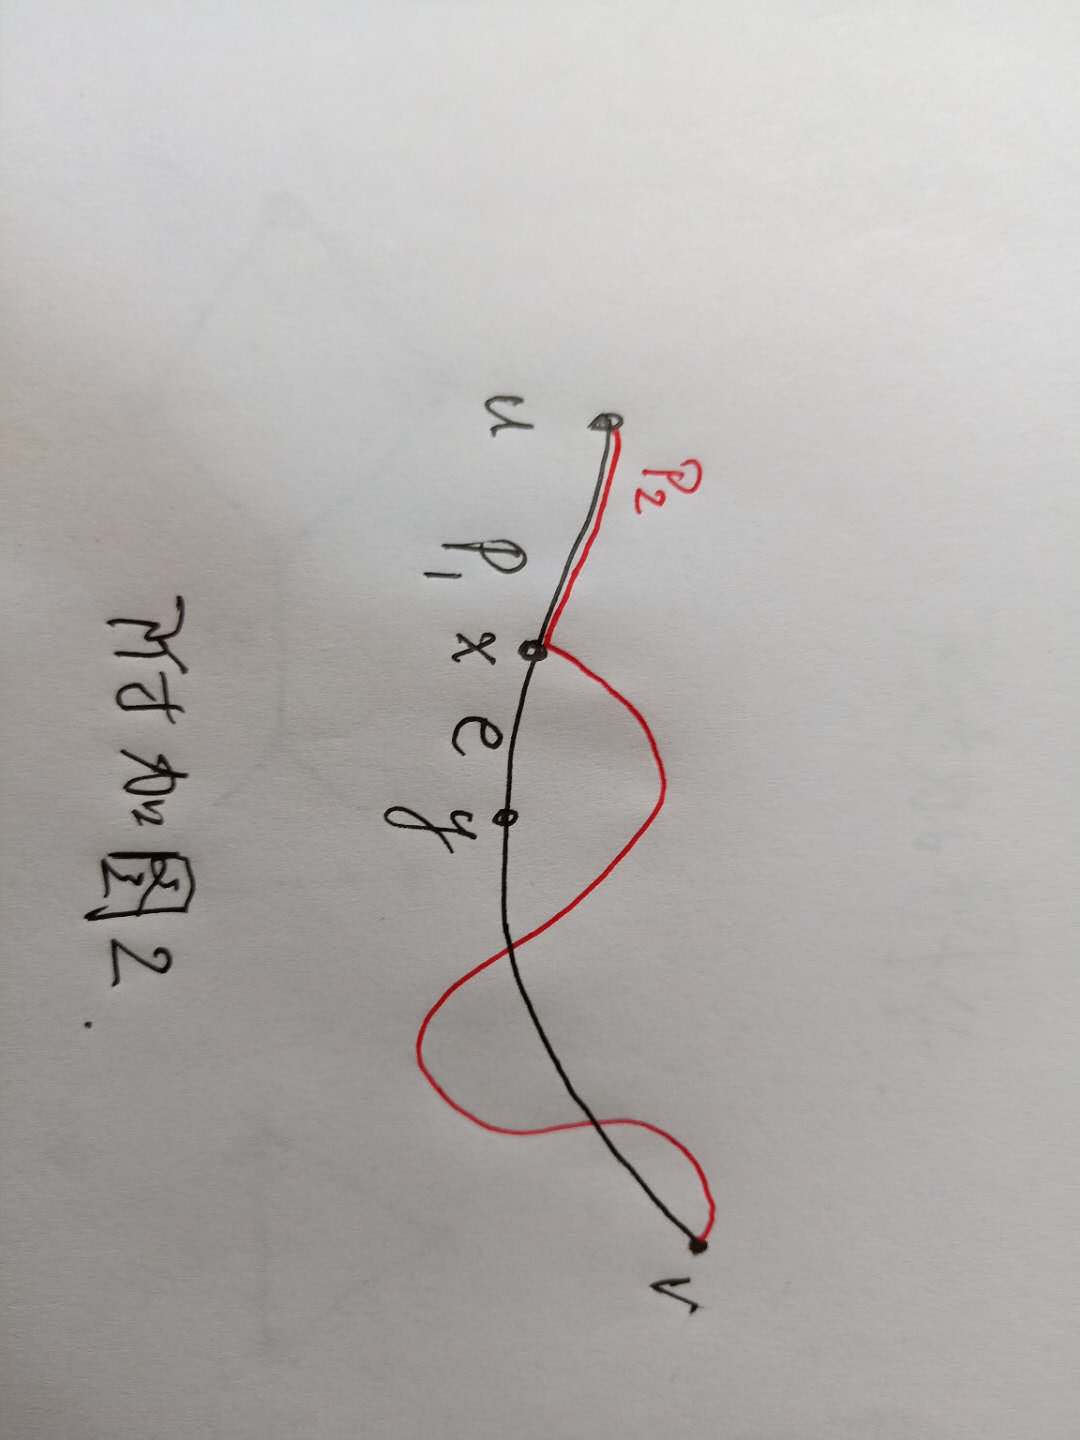 P2
v
u
P1 x e y
附加图2.